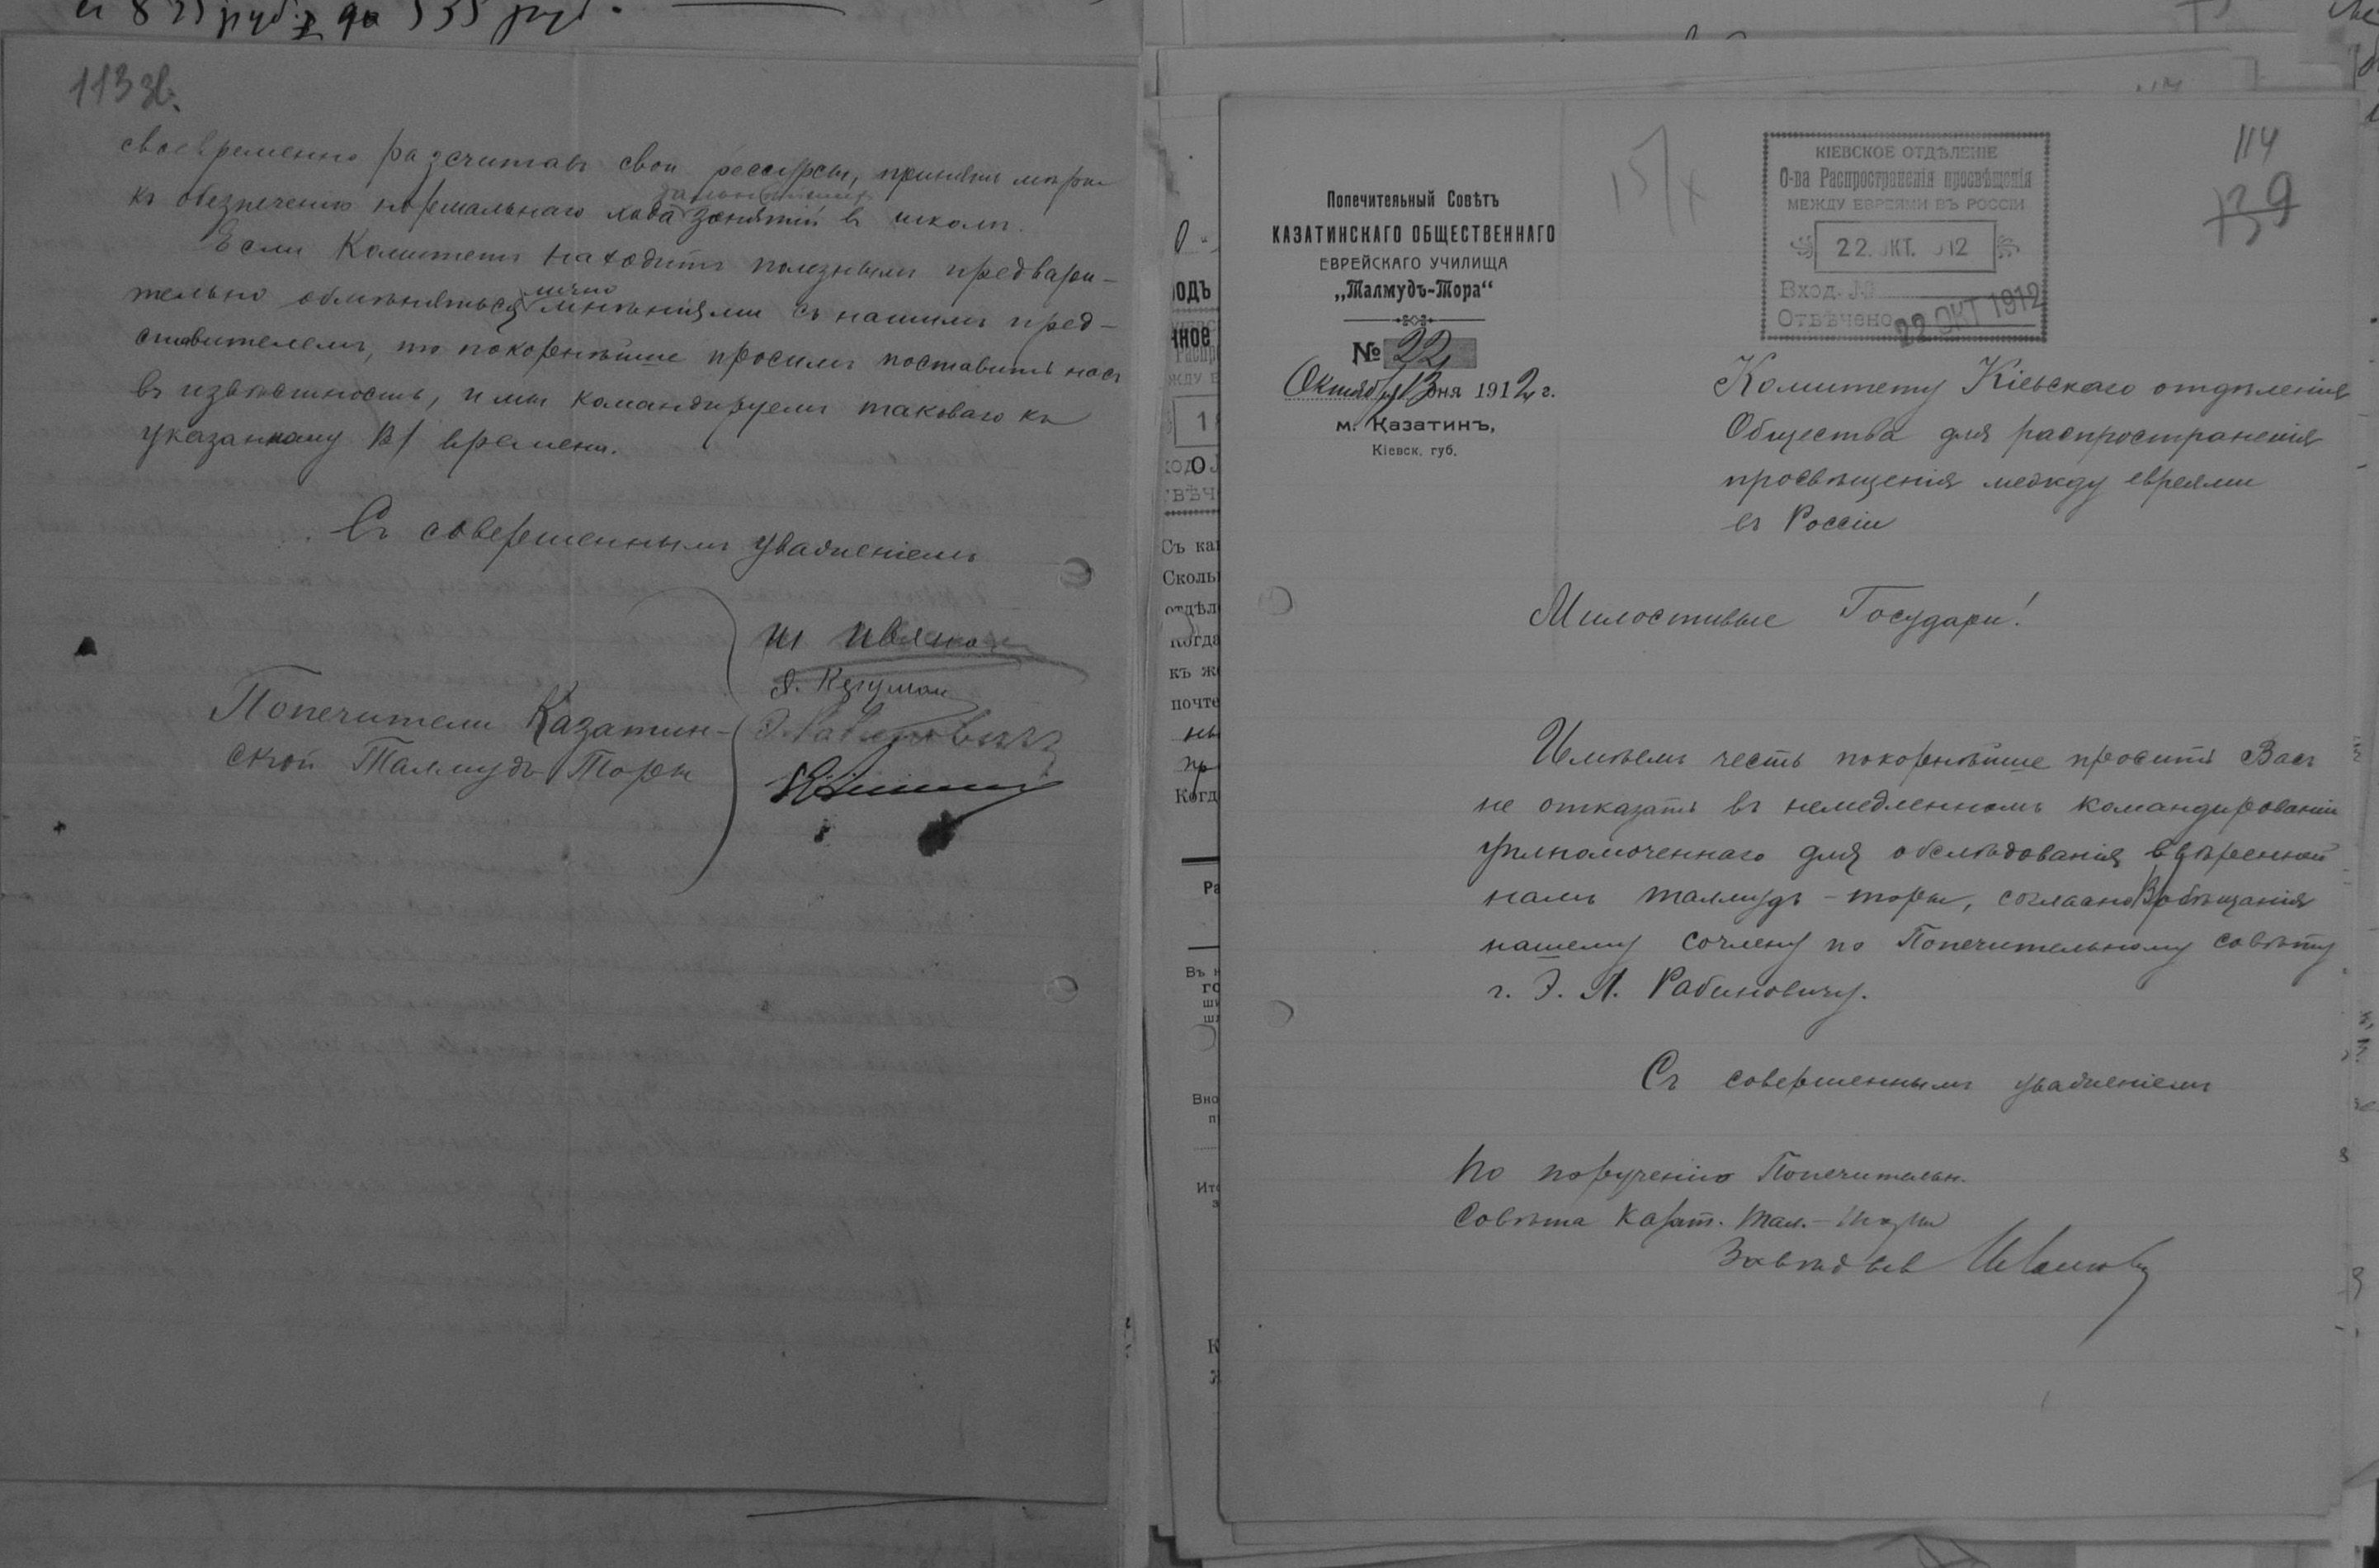 113 зв.
своевременно разсчитавъ свои рессурсы, принять мѣры
къ обезпеченію нормальнаго хода занятій въ школѣ.
Если Комитетъ находитъ полезнымъ предвари-
тельно обмѣняться лично мнѣніями съ нашимъ пред-
ставителемъ, то покорнѣйше просимъ поставить насъ
въ извѣстность, и мы командируемъ таковаго къ
указанному Вр времени.
Съ совершеннымъ уваженіемъ
Попечители Казатин-
ской Талмудъ-Торы
Попечительный Совѣтъ
КАЗАТИНСКАГО ОБЩЕСТВЕННАГО
ЕВРЕЙСКАГО УЧИЛИЩА
„Талмудъ-Тора“
№ 22
Октября 13 дня 1912 г.
м. Казатинъ,
Кіевск. губ.
15/X
КІЕВСКОЕ ОТДѢЛЕНІЕ
О-ва Распространенія просвѣщенія
МЕЖДУ ЕВРЕЯМИ ВЪ РОССІИ
22 ОКТ. 912
Вход. №
Отвѣчено 22 ОКТ 1912
114
139
Комитету Кіевскаго отдѣленія
Общества для распространенія
просвѣщенія между евреями
въ Россіи
Милостивые Государи!
Имѣемъ честь покорнѣйше просить Васъ
не отказать въ немедленномъ командированіи
уполномоченнаго для обслѣдованія ввѣренной
намъ талмудъ-торы, согласно Вр обѣщанія
нашему сочлену по Попечительному совѣту
г. Э. Л. Рабиновичу.
Съ совершеннымъ уваженіемъ
По порученію Попечительн.
Совѣта Казат. Тал.-Торы